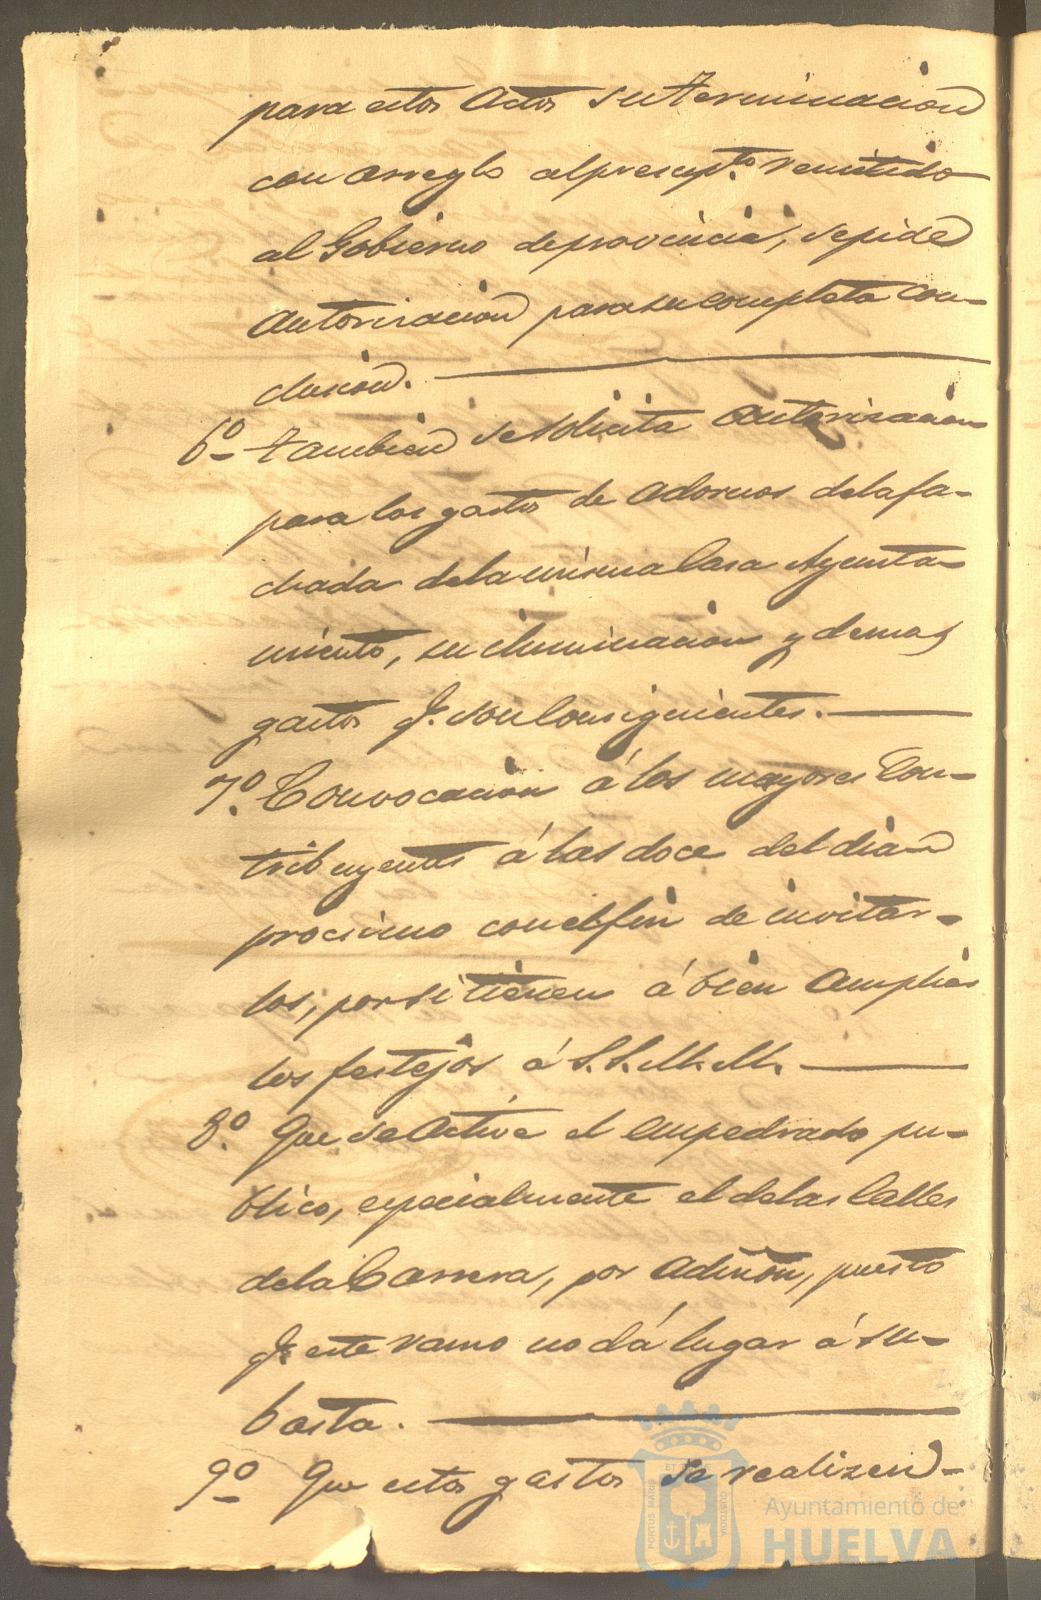 para estos Actos su terminacion
con arreglo al presup.to remitido
al Gobierno de provincia, se pide
autorizacion para su completa con-
clusion.
6º Tambien se solicita autorizacion
para los gastos de adornos de la fa-
chada de la misma Casa Ayunta-
miento, su iluminacion y demas
gastos q. son consiguientes.
7º. Convocacion á los mayores Con-
tribuyentes á las doce del dia
procsimo con el fin de invitar-
los, por si tienen á bien ampliar
los festejos á S.S.M.M.
8º. Que se active el empedrado pu-
blico, especialmente el de las Calles
de la Carrera, por admon, puesto
q. este ramo no dá lugar á su-
basta.
9º Que estos gastos se realizen
PORTUS MARIS ET TERRAE CUSTODIA
Ayuntamiento de
HUELVA